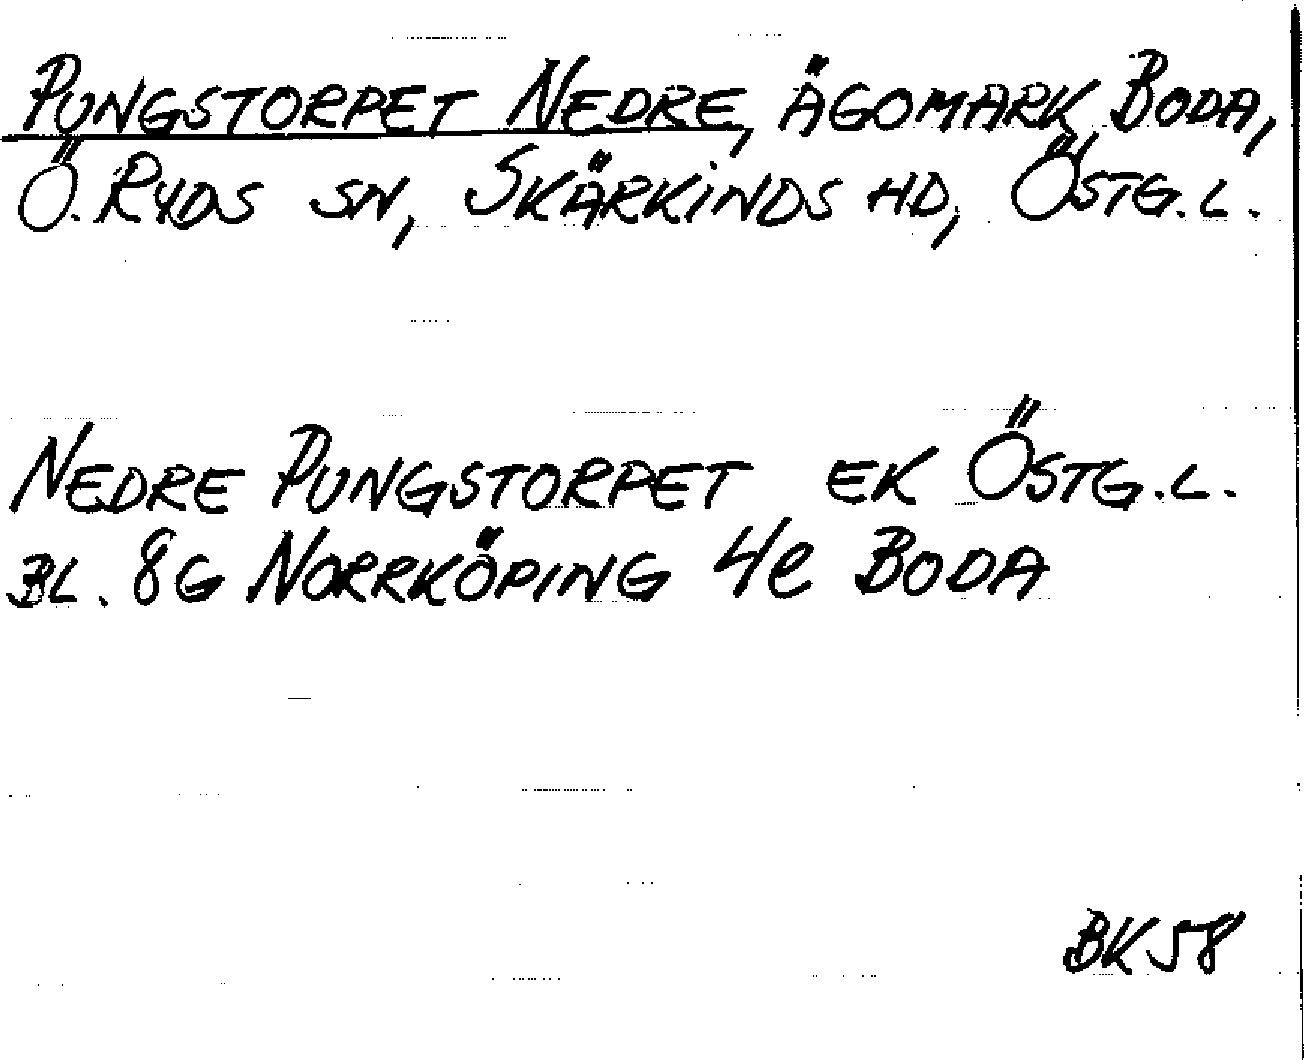 PUNGSTORPET NEDRE, ÄGOMARK, BODA,
Ö. RYDS SN, SKÄRKINDS HD, ÖSTG.L.
NEDRE PUNGSTORPET EK ÖSTG.L.
BL. 8G NORRKÖPING 4e BODA
BK58